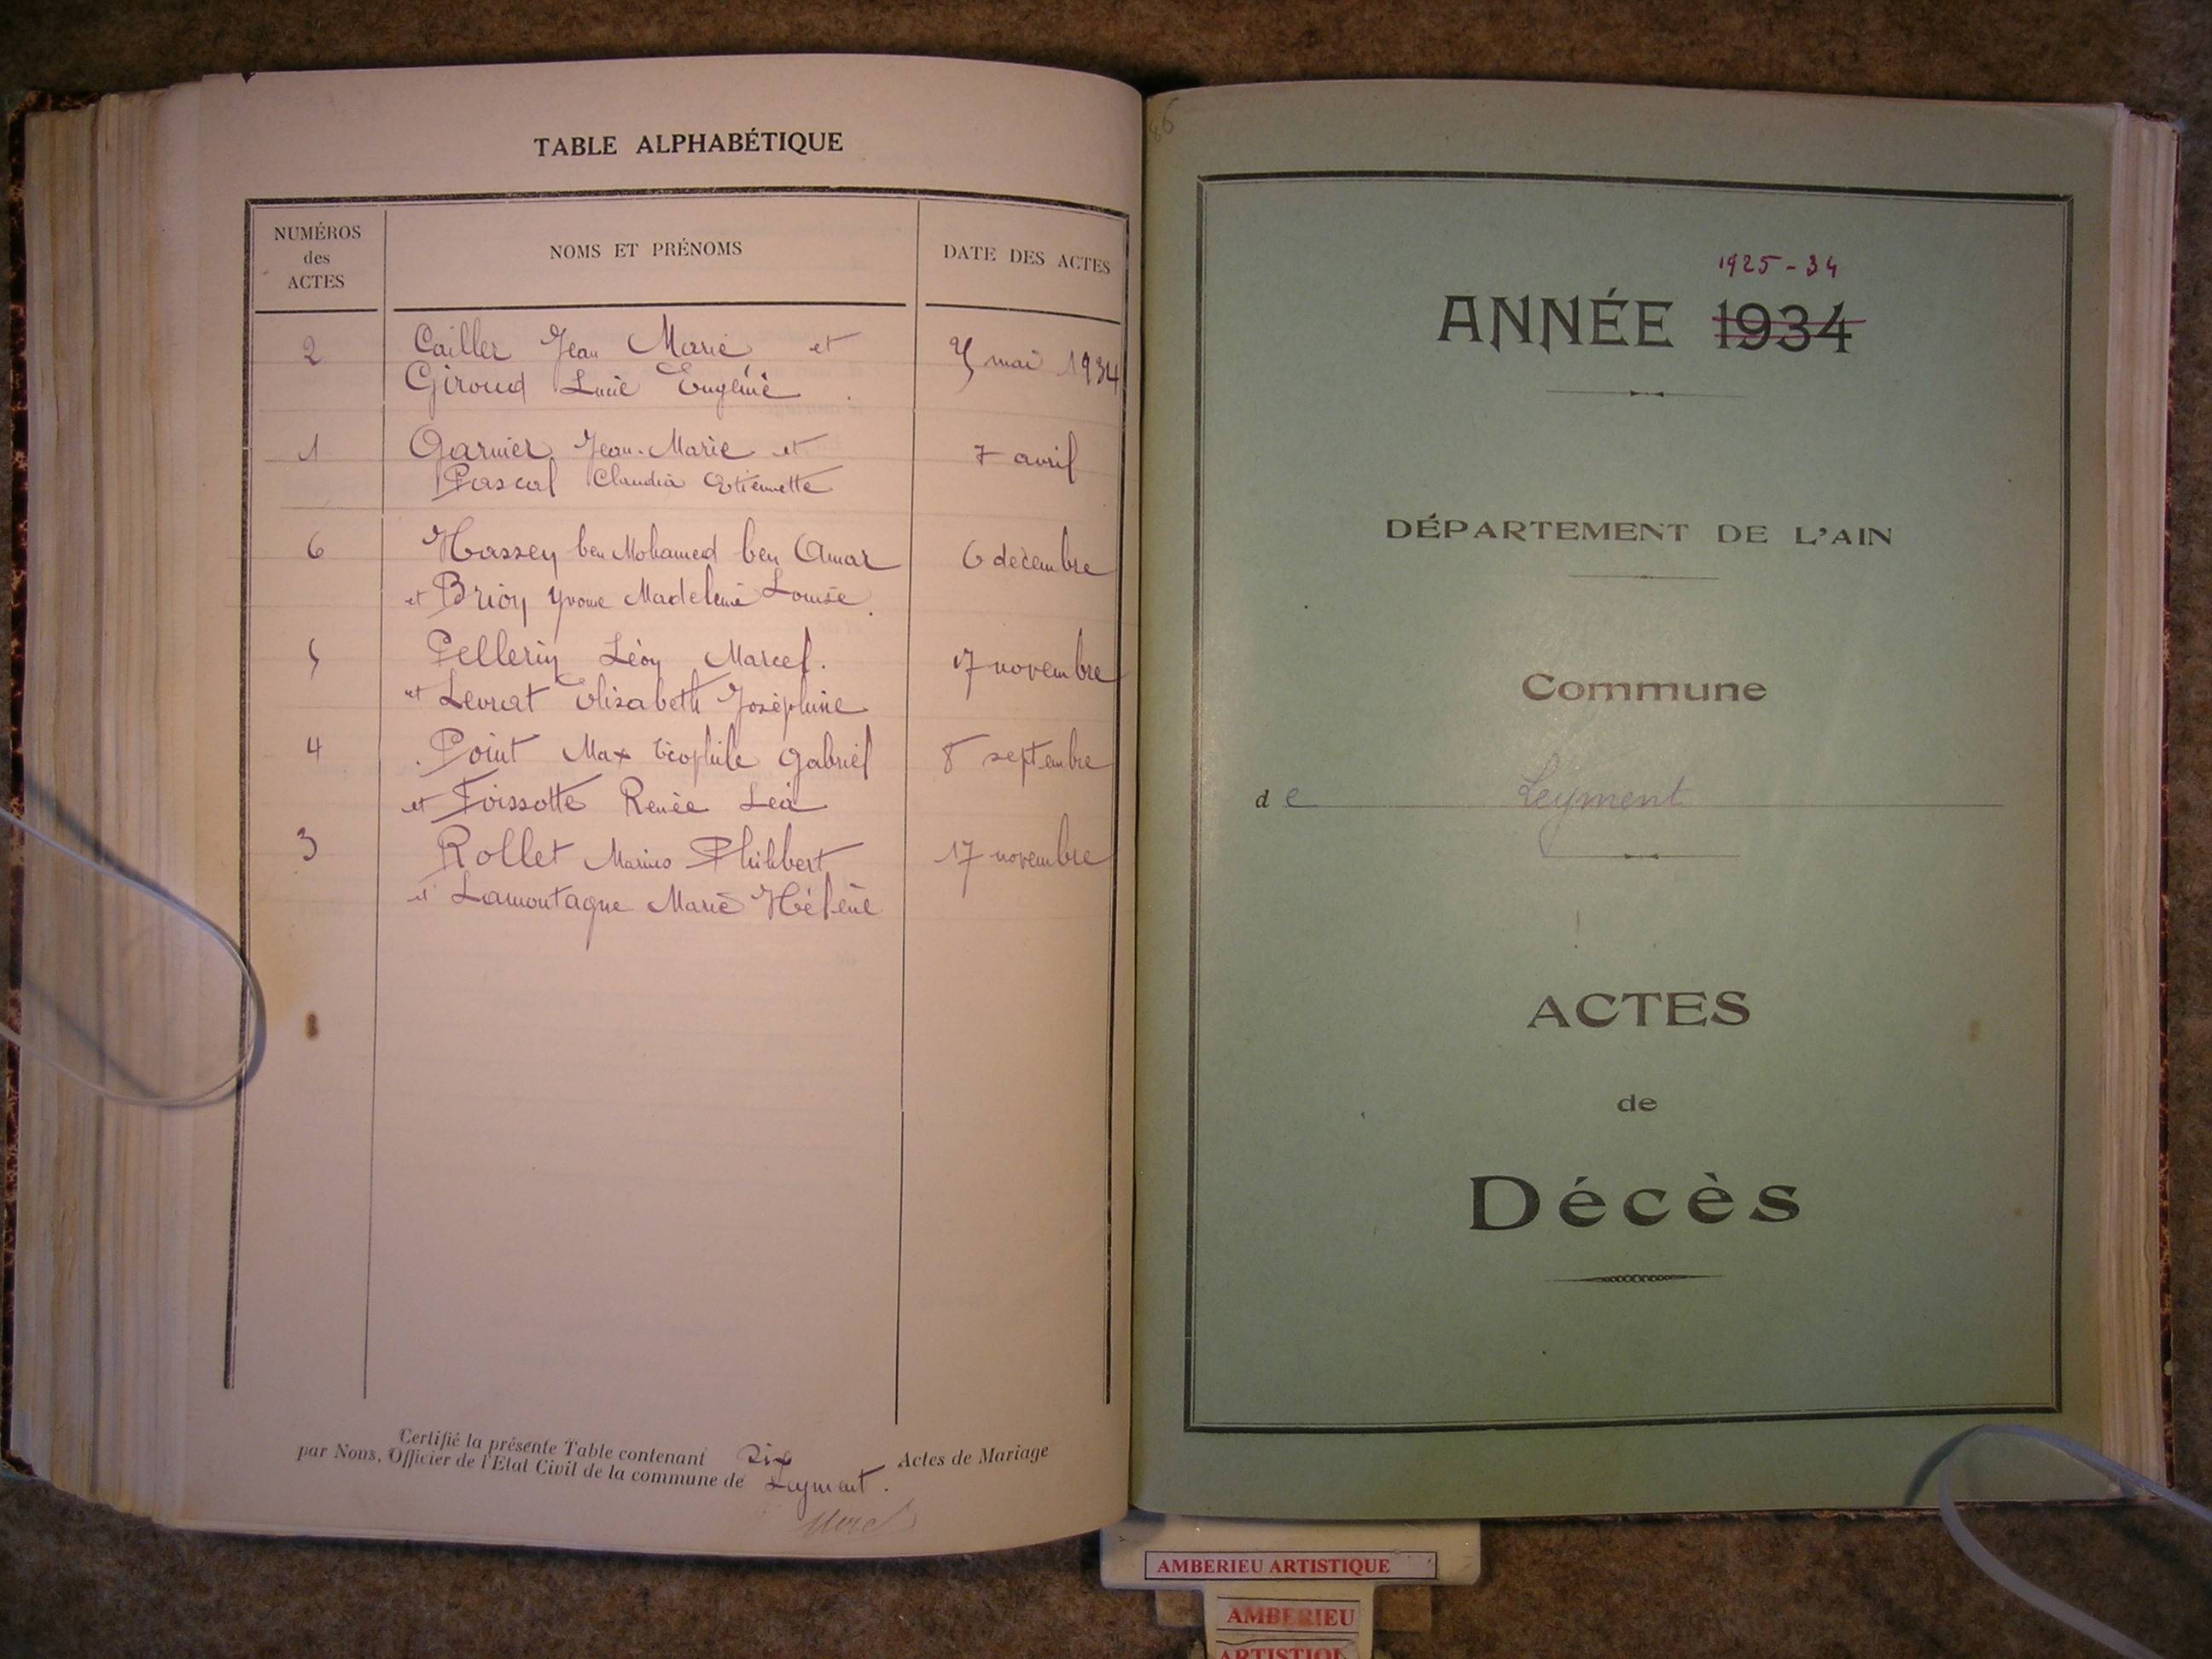 TABLE ALPHABÉTIQUE
NUMÉROS
des
ACTES
NOMS ET PRÉNOMS
DATE DES ACTES
2
Cailler Jean Marie et
Giroud Lucie Eugénie
mai 1934
1
Garnier Jean-Marie et
Pascal Claudia Etiennette
7 avril
6
Hassen ben Mohamed ben Amar
et Brion Yvonne Madeleine Louise
6 décembre
5
Pellerin Léon Marcel
et Levrat Elisabeth Joséphine
17 novembre
4
Point Max Téophile Gabriel
et Foissotte Renée Léa
8 septembre
3
Rollet Marius Philibert
et Lamontagne Marie Hélène
17 novembre
Certifié la présente Table contenant Six Actes de Mariage
par Nous, Officier de l'Etat Civil de la commune de Leyment.
86
1925-34
ANNÉE 1934
DÉPARTEMENT DE L'AIN
Commune
de Leyment
ACTES
de
Décès
AMBERIEU ARTISTIQUE
AMBERIEU